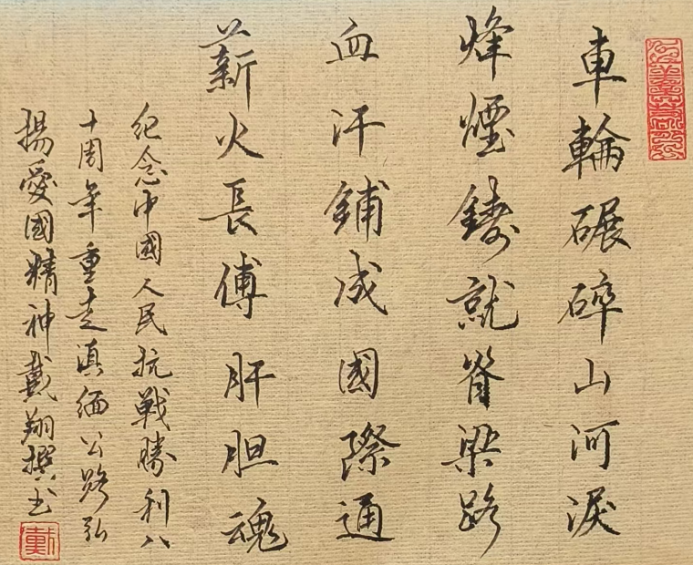 車輪碾碎山河淚
烽煙鑄就脊梁路
血汗鋪成國際通
薪火長傅肝胆魂
纪念中國人民抗戰勝利八
十周年重走滇缅公路弘
揚愛國精神戴翔撰书